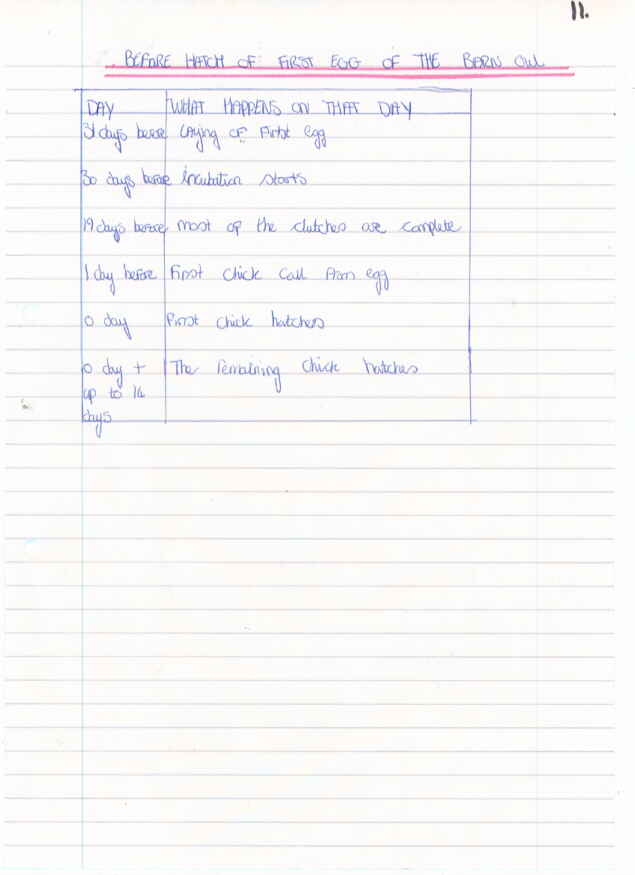 11.
BEFORE HATCH OF FIRST EGG OF THE BARN OWL
DAY WHAT HAPPENS ON THAT DAY
31 days before Laying of First egg
30 days before incubation starts
19 days before most of the clutches are complete
1 day before First chick call from egg
0 day First chick hatches
0 day + The remaining chick hatches
up to 14
days